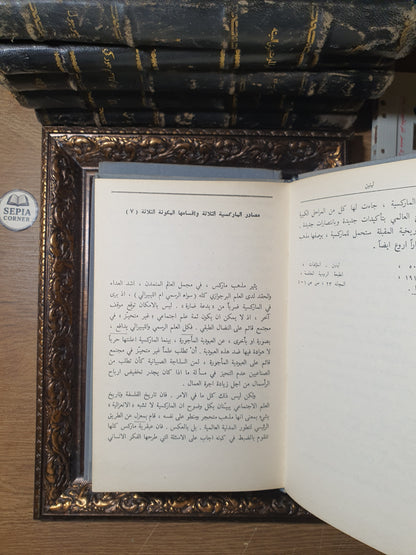 SEPIA
CORNER
لينين
الماركسية ، جاءت لها كل من المراحل الكبيرة
العالمي بتأكيدات جديدة وبانتصارات جديدة .
ريخية المقبلة ستحمل للماركسية ، بوصفها مذهب
أروع ايضاً .
لينين ، المؤلفات ،
الطبعة الروسية الخامسة ،
المجلد ٢٣ ، ص ص
مصادر الماركسية الثلاثة واقسامها المكونة الثلاثة (٧)
يثير مذهب ماركس ، في مجمل العالم المتمدن ، اشد العداء
والحقد لدى العلم البرجوازي كله (سواء الرسمي ام الليبرالي) ، اذ يرى
في الماركسية ضرباً من «بدعة ضارة» . ليس بالامكان توقع موقف
آخر ، اذ لا يمكن ان يكون ثمة علم اجتماعي «غير متحيز» في
مجتمع قائم على النضال الطبقي . فكل العلم الرسمي والليبرالي يدافع ،
بصورة او بأخرى ، عن العبودية المأجورة ، بينما الماركسية اعلنتها حرباً
لا هوادة فيها ضد هذه العبودية . أن تطلب علماً غير متحيز في مجتمع
قائم على العبودية المأجورة ، لمن السذاجة الصبيانية كأن تطلب من
الصناعيين عدم التحيز في مسألة ما اذا كان يجدر تخفيض ارباح
الرأسمال من أجل زيادة اجرة العمال .
ولكن ليس ذلك كل ما في الامر . فان تاريخ الفلسفة وتاريخ
العلم الاجتماعي يبينان بكل وضوح ان الماركسية لا تشبه «الانعزالية»
بشيء بمعنى انها مذهب متحجر ومنطو على نفسه ، قام بمعزل عن الطريق
الرئيسي لتطور المدنية العالمية . بل بالعكس . فان عبقرية ماركس كلها
تقوم بالضبط في كونه اجاب على الاسئلة التي طرحها الفكر الانساني